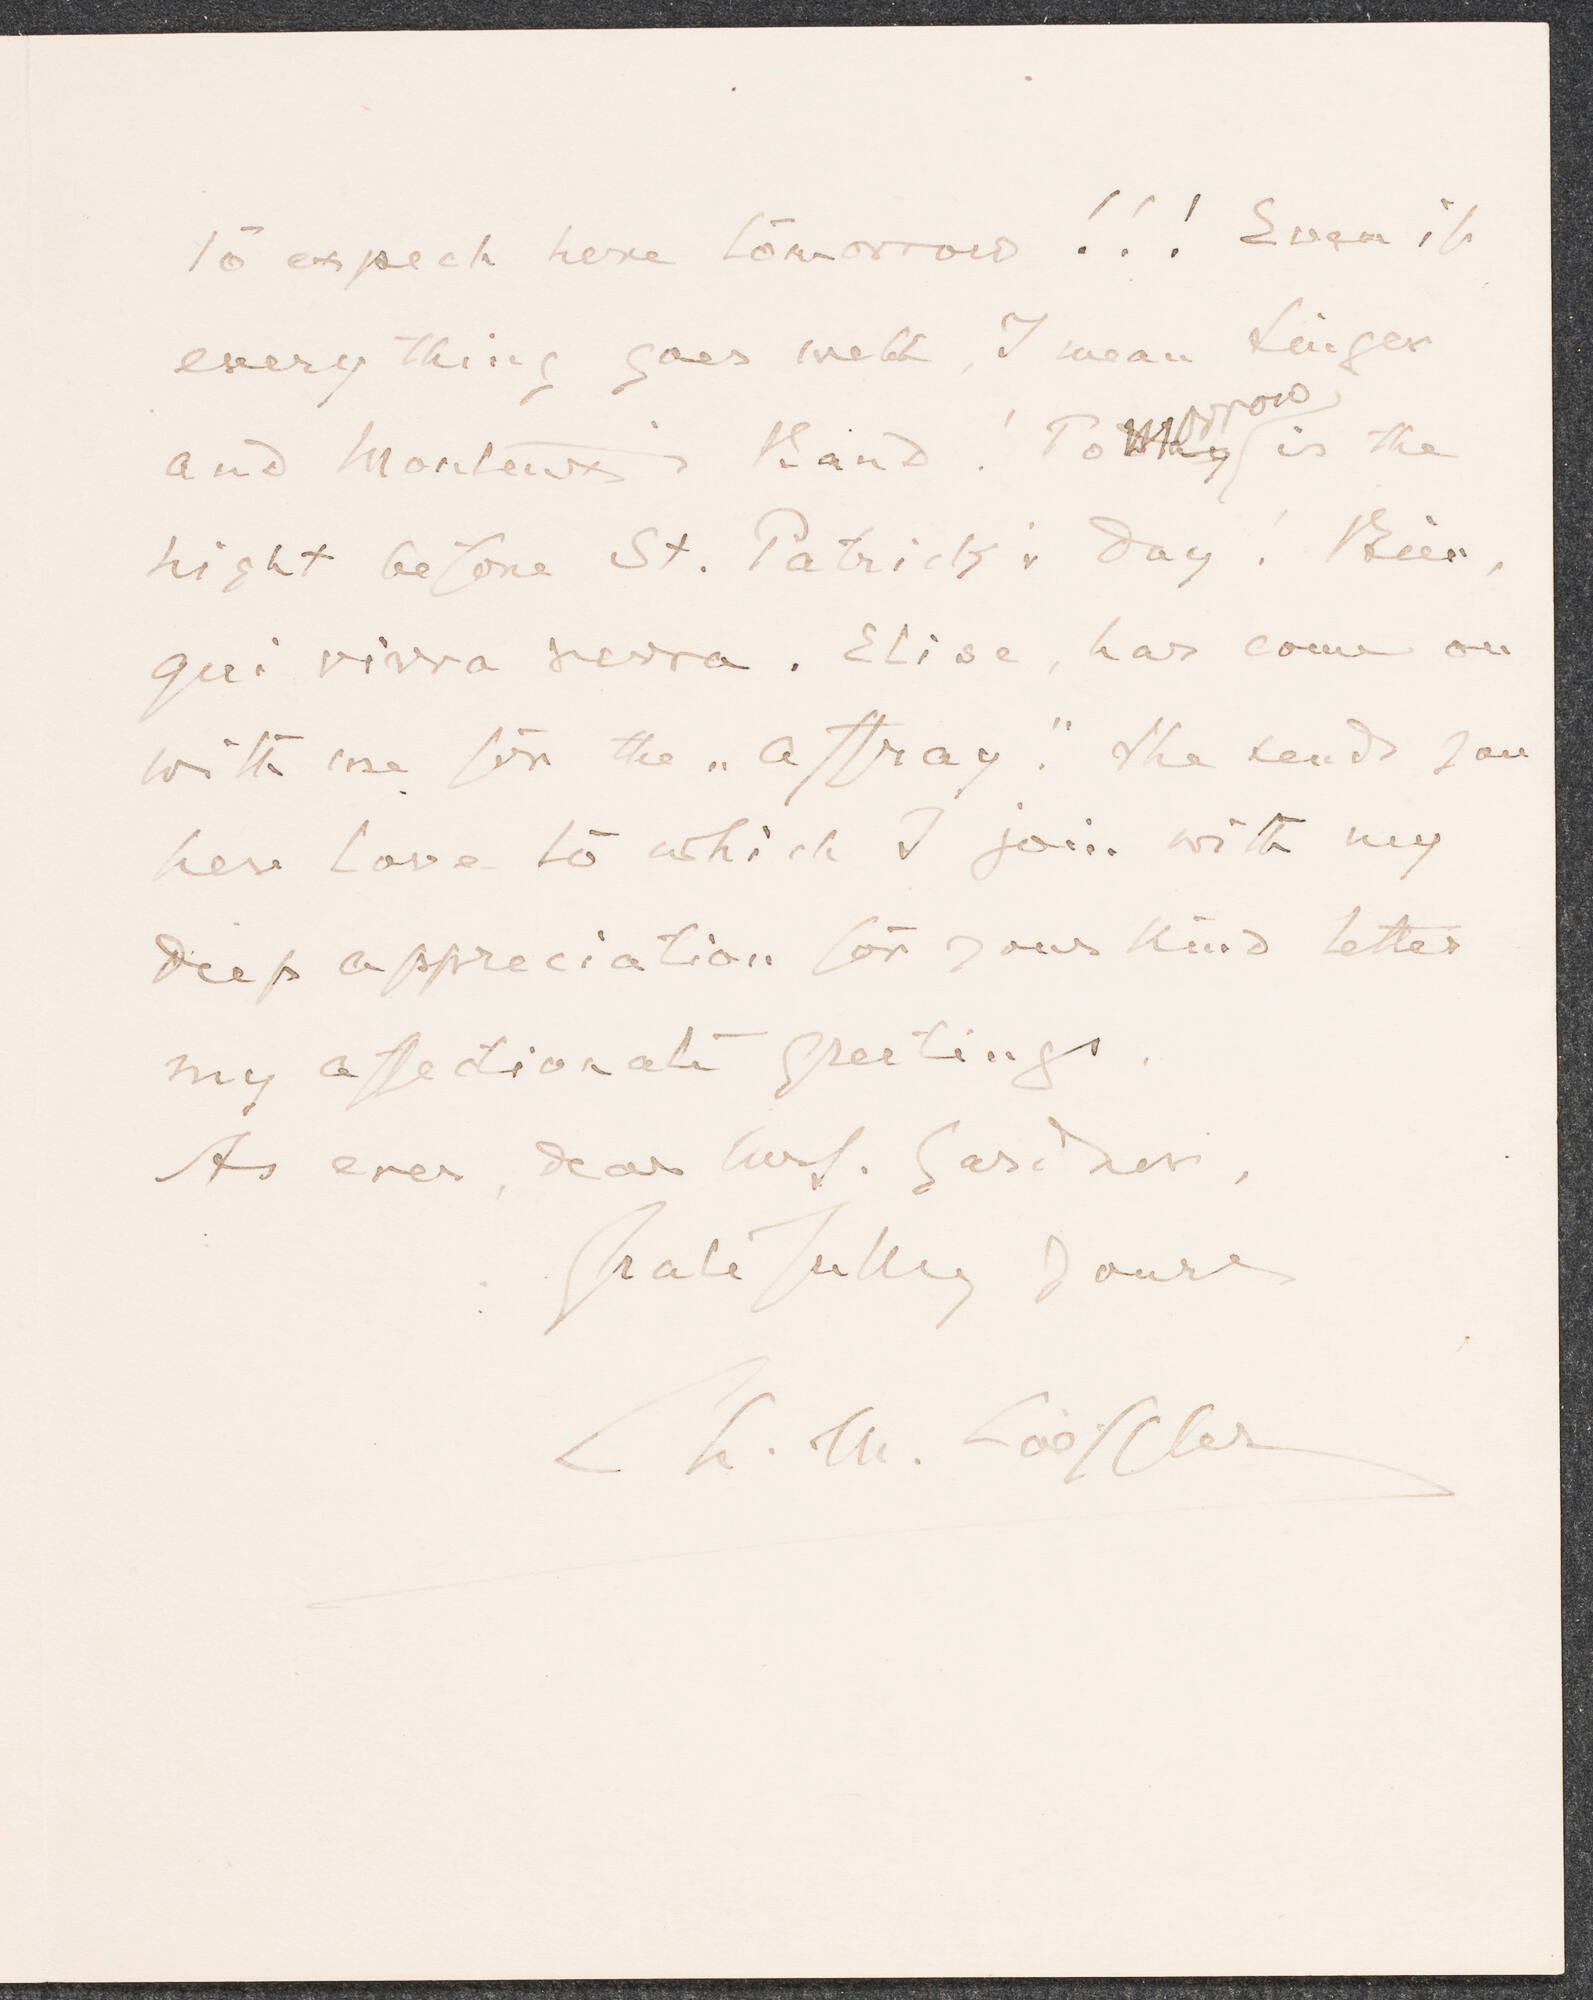 to expect here tomorrow !!! Even if
everything goes well, I mean singer
and Monteux's Band! Tomorrow is the
night before St. Patrick's Day! Bien,
qui vivra verra. Elise, has come on
with me for the „affray". She sends you
her love to which I join with my
deep appreciation for your kind letter
my affectionate greetings.
As ever, dear Mrs. Gardner,
Gratefully yours
Ch. M. Loeffler